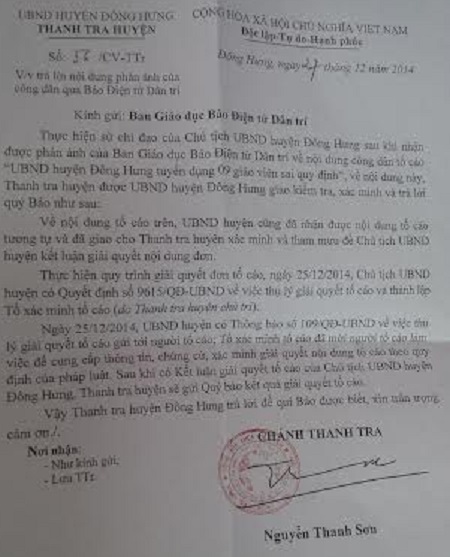 UBND HUYỆN ĐÔNG HƯNG
THANH TRA HUYỆN
Số: /CV-TTr
V/v trả lời nội dung phản ánh của
công dân qua Báo Điện tử Dân trí
CỘNG HÒA XÃ HỘI CHỦ NGHĨA VIỆT NAM
Độc lập-Tự do-Hạnh phúc
Đông Hưng, ngày tháng 12 năm 2014
Kính gửi: Ban Giáo dục Báo Điện tử Dân trí
Thực hiện sự chỉ đạo của Chủ tịch UBND huyện Đông Hưng sau khi nhận
được phản ánh của Ban Giáo dục Báo Điện tử Dân trí về nội dung công dân tố cáo
"UBND huyện Đông Hưng tuyển dụng 09 giáo viên sai quy định", về nội dung này,
Thanh tra huyện được UBND huyện Đông Hưng giao kiểm tra, xác minh và trả lời
quý Báo như sau:
Về nội dung tố cáo trên, UBND huyện cũng đã nhận được nội dung tố cáo
tương tự và đã giao cho Thanh tra huyện xác minh và tham mưu để Chủ tịch UBND
huyện kết luận giải quyết nội dung đơn.
Thực hiện quy trình giải quyết đơn tố cáo, ngày 25/12/2014, Chủ tịch UBND
huyện có Quyết định số 9615/QĐ-UBND về việc thụ lý giải quyết tố cáo và thành lập
Tổ xác minh tố cáo (do Thanh tra huyện chủ trì).
Ngày 25/12/2014, UBND huyện có Thông báo số 109/QĐ-UBND về việc thụ
lý giải quyết tố cáo gửi tới người tố cáo; Tổ xác minh tố cáo đã mời người tố cáo làm
việc để cung cấp thông tin, chứng cứ, xác minh giải quyết nội dung tố cáo theo quy
định của pháp luật. Sau khi có Kết luận giải quyết tố cáo của Chủ tịch UBND huyện
Đông Hưng, Thanh tra huyện sẽ gửi Quý báo kết quả giải quyết tố cáo.
Vậy Thanh tra huyện Đông Hưng trả lời để quí Báo được biết, xin trân trọng
cảm ơn./.
Nơi nhận:
- Như kính gửi;
- Lưu TTr.
CHÁNH THANH TRA
Nguyễn Thanh Sơn